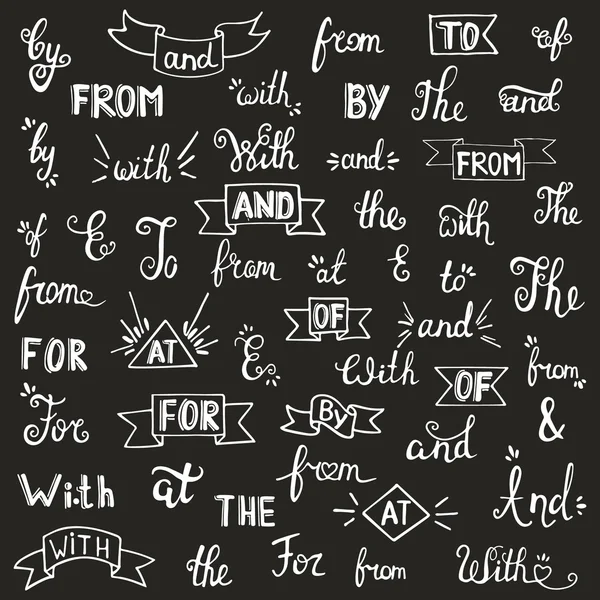 by and from TO of
FROM with BY The and
by with With and FROM
of & To AND the with The
from from at & to The
FOR AT & OF and from
For FOR By With OF &
With at THE from and And
WITH the For from AT With